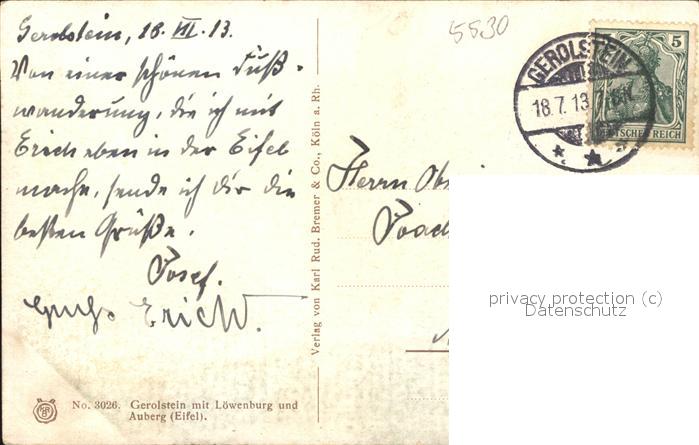 Gerolstein, 18. VII. 13.
Von einer schönen Fuß-
wanderung, die ich mit
Erich eben in der Eifel
mache, sende ich Dir die
besten Grüße.
Josef.
Gruß Erich W.
No. 3026. Gerolstein mit Löwenburg und
Auberg (Eifel).
Verlag von Karl Rud. Bremer & Co., Köln a. Rh.
5530
GEROLSTEIN
18.7.13.
5
DEUTSCHES REICH
Herrn
privacy protection (c)
Datenschutz